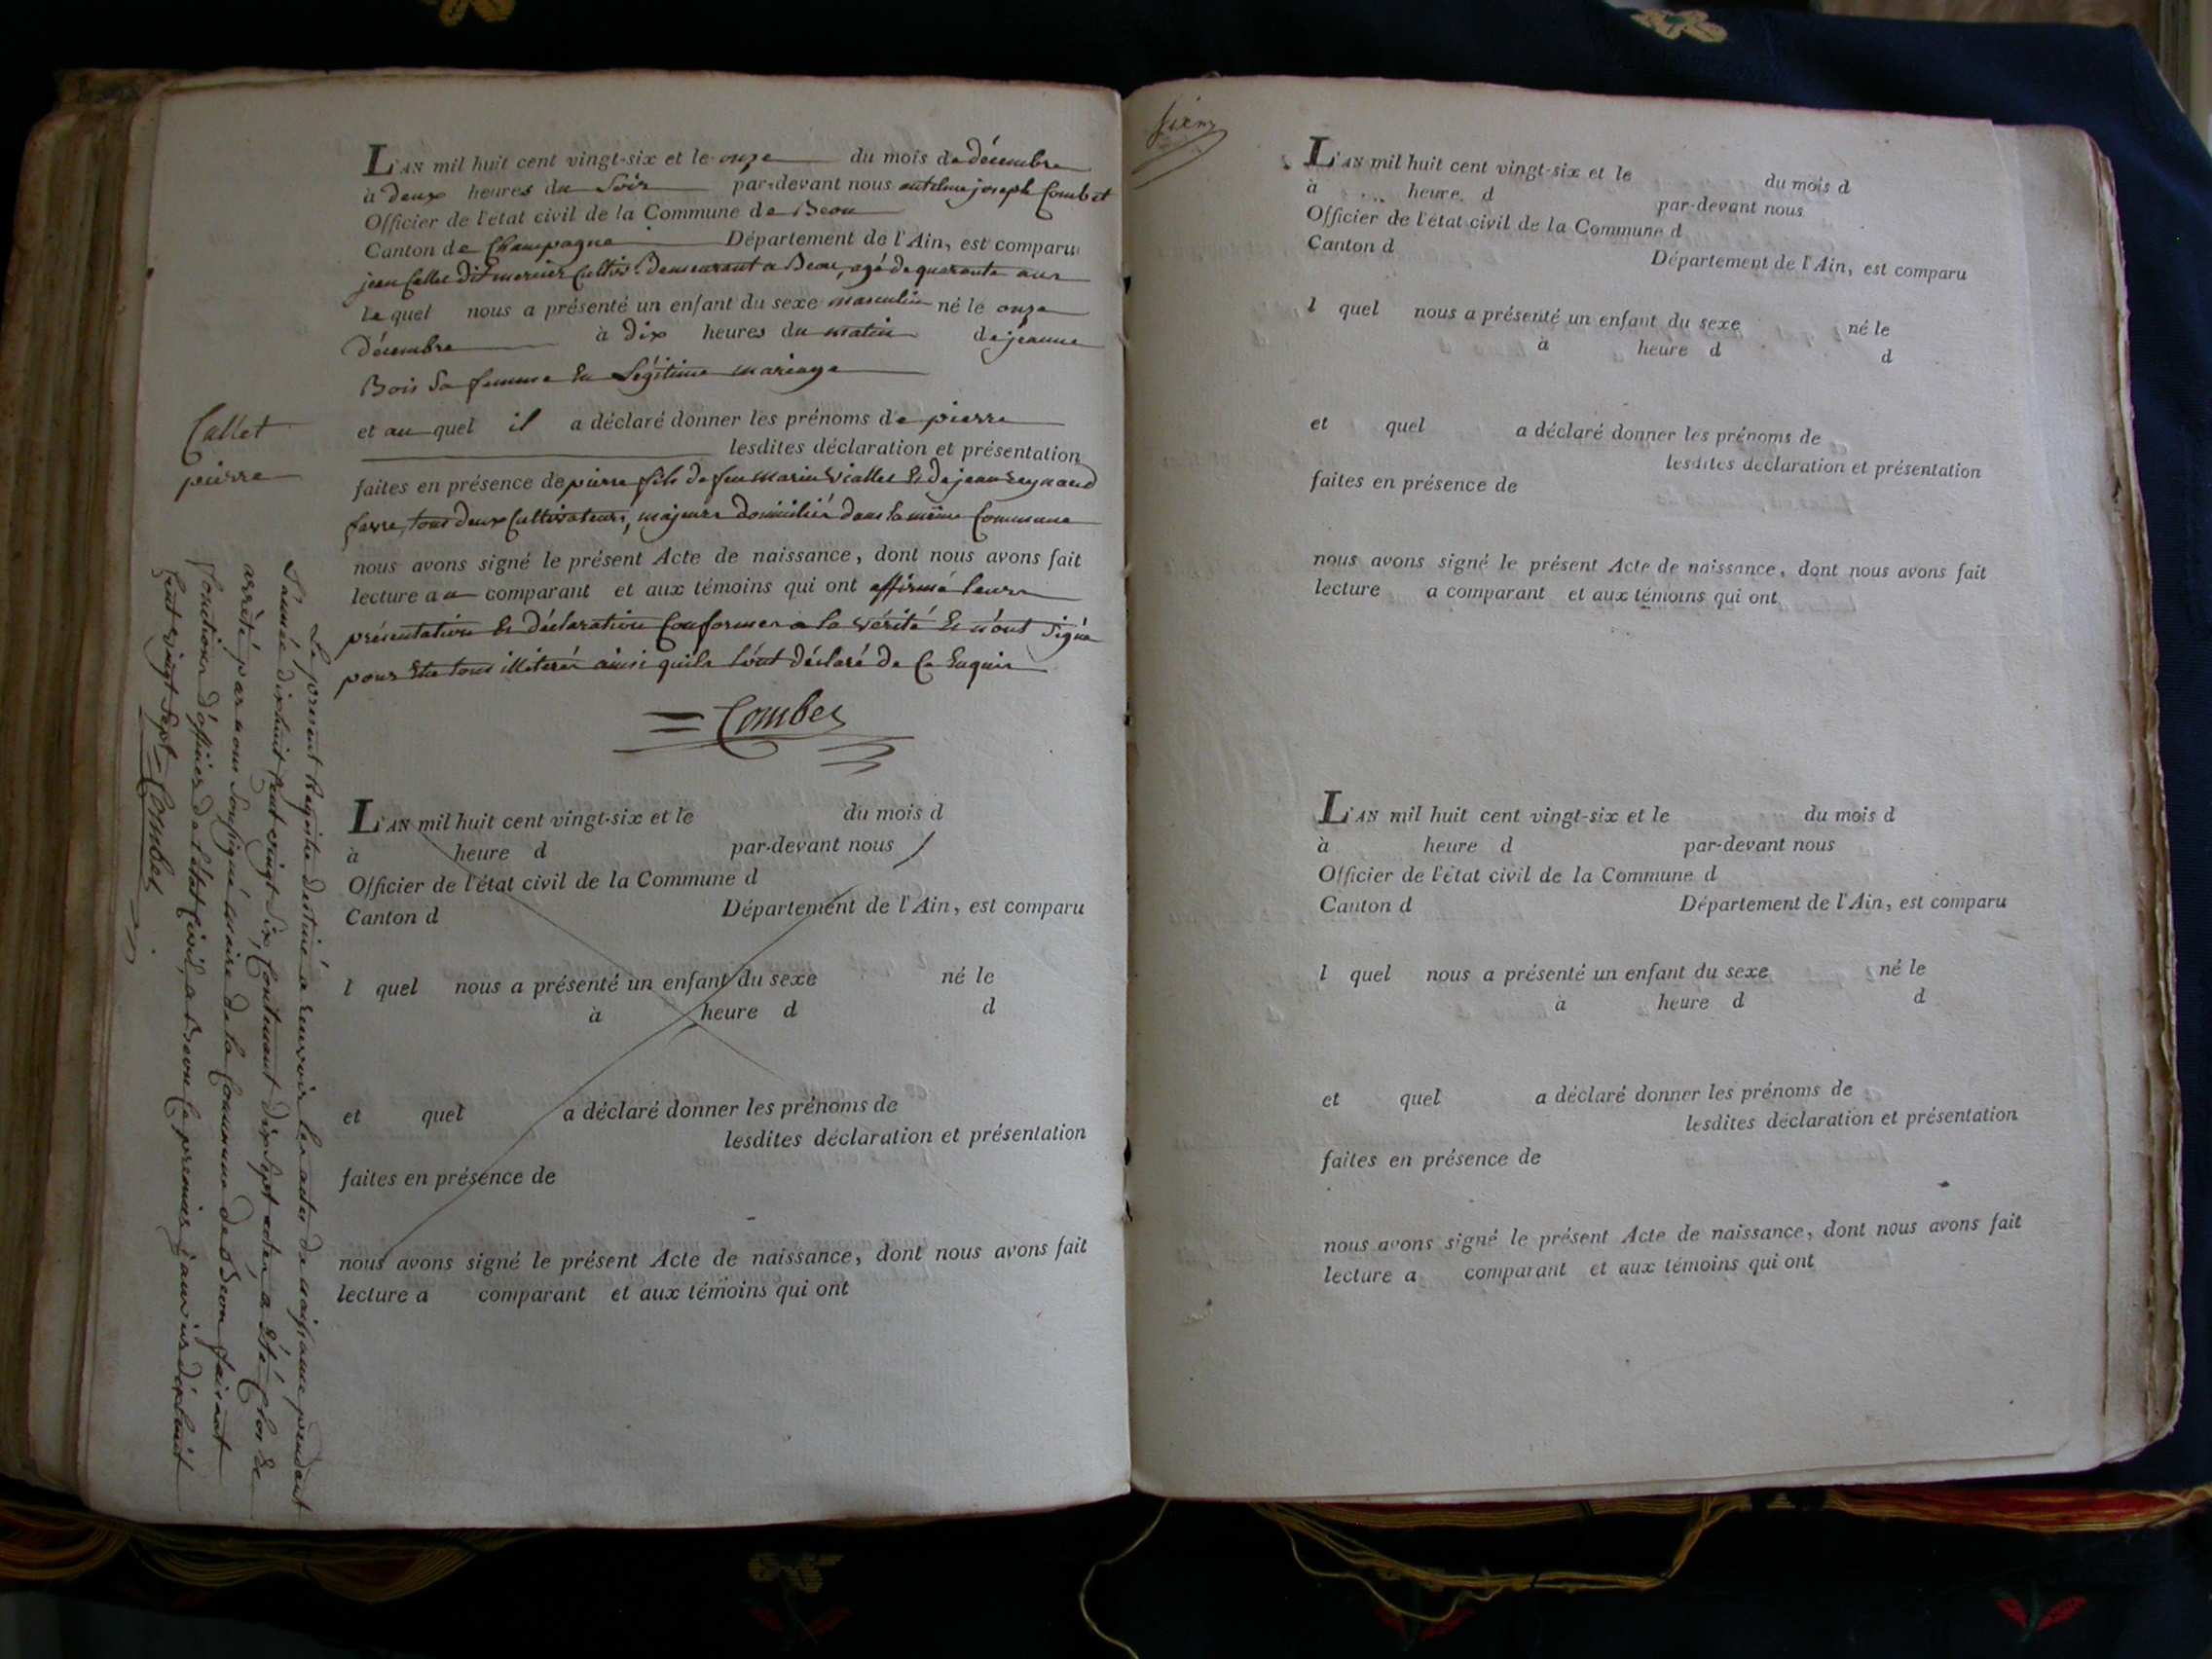 L'AN mil huit cent vingt-six et le onze du mois de décembre
à deux heures du Soir par-devant nous antelme joseph Combet
Officier de l'état civil de la Commune de Beon
Canton de Champagne Département de l'Ain, est comparu
jean Callet dit mercier Cultivr. Demeurant a Beon, agé de quarante ans
le quel nous a présenté un enfant du sexe masculin né le onze
décembre à dix heures du matin de jeanne
Bois Sa femme En Légitime mariage
Callet
pierre
et au quel il a déclaré donner les prénoms de pierre
lesdites déclaration et présentation
faites en présence de pierre fils de feu marin Viallet & de jean Reynaud
tous deux Cultivateurs, majeurs domiciliés dans la même Commune
nous avons signé le présent Acte de naissance, dont nous avons fait
lecture au comparant et aux témoins qui ont affirmé leurs
présentation & déclaration Conformes a la vérité & n'ont Signé
pour Etre tous illiterés ainsi quils l'ont déclaré de Ce Enquis
Combet
Le present Registre destiné a recevoir les actes de naissance pendant
L'année dixhuit Cent vingt Six, Contenant dixsept actes, a Eté Clos &
arrêté par nous Soussigné maire de la Commune de Beon faisant
fonctions d'officier de l'état Civil, a Beon le premier janvier dixhuit
Cent vingt Sept = Combet
L'AN mil huit cent vingt-six et le du mois d
à heure d par-devant nous
Officier de l'état civil de la Commune d
Canton d Département de l'Ain, est comparu
l quel nous a présenté un enfant du sexe né le
à heure d d
et quel a déclaré donner les prénoms de
lesdites déclaration et présentation
faites en présence de
nous avons signé le présent Acte de naissance, dont nous avons fait
lecture a comparant et aux témoins qui ont
L'AN mil huit cent vingt-six et le du mois d
à heure d par-devant nous
Officier de l'état civil de la Commune d
Canton d Département de l'Ain, est comparu
l quel nous a présenté un enfant du sexe né le
à heure d d
et quel a déclaré donner les prénoms de
lesdites déclaration et présentation
faites en présence de
nous avons signé le présent Acte de naissance, dont nous avons fait
lecture a comparant et aux témoins qui ont
L'AN mil huit cent vingt-six et le du mois d
à heure d par-devant nous
Officier de l'état civil de la Commune d
Canton d Département de l'Ain, est comparu
l quel nous a présenté un enfant du sexe né le
à heure d d
et quel a déclaré donner les prénoms de
lesdites déclaration et présentation
faites en présence de
nous avons signé le présent Acte de naissance, dont nous avons fait
lecture a comparant et aux témoins qui ont